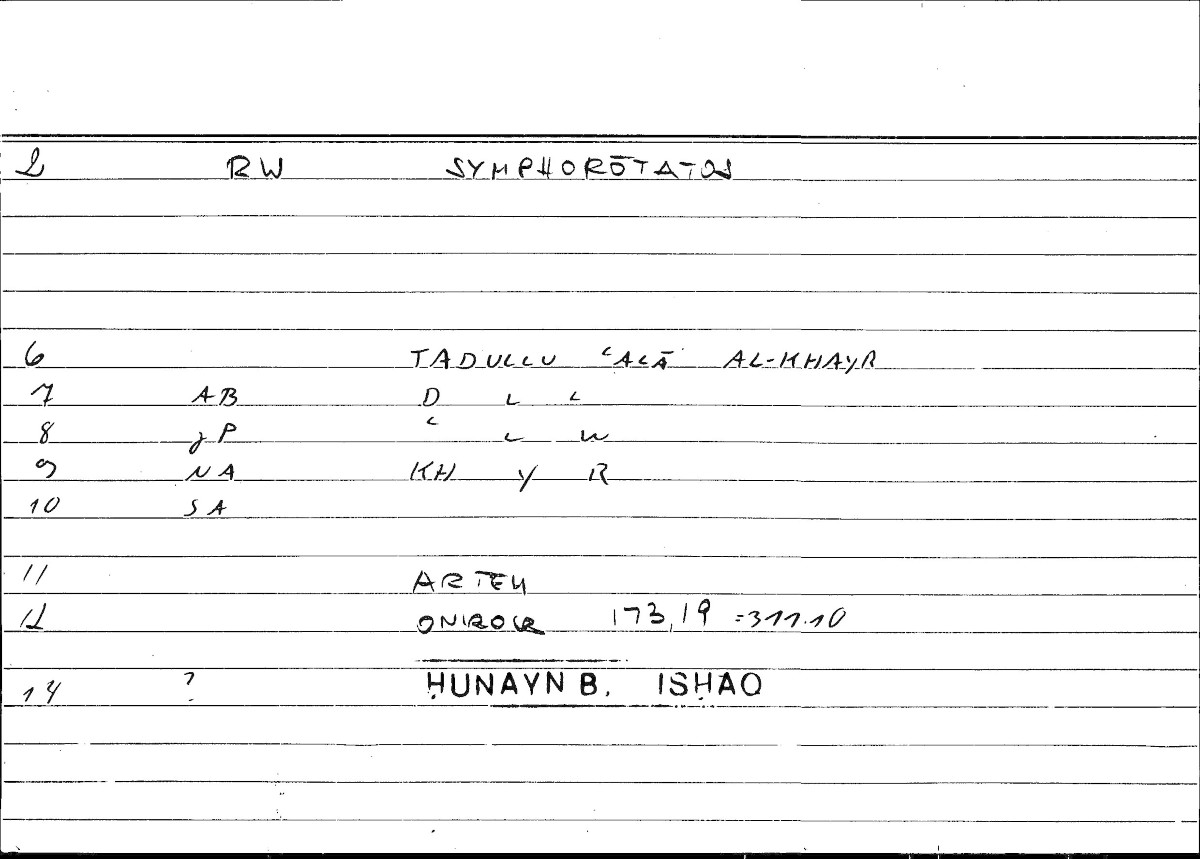 2 RW SYMPHORŌTATOS
6 TADULLU ʿALĀ AL-KHAYR
7 AB D L L
8 JP ʿ L W
9 NA KH Y R
10 SA
11 ARTEM
12 ONIROCR 173,19 =311.10
14 ? ḤUNAYN B. ISḤAQ